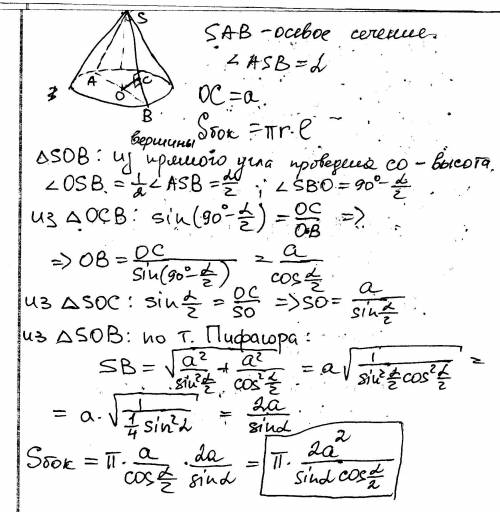 S
A
C
O
B
SAB - осевое сечение
∠ASB = α
OC = a
Sбок = πr·l
вершины
ΔSOB: из прямого угла проведена CO - высота.
∠OSB = 1/2 ∠ASB = α/2 ; ∠SBO = 90° - α/2
из ΔOCB: sin(90° - α/2) = OC/OB =>
=> OB = OC/sin(90° - α/2) = a/cos α/2
из ΔSOC: sin α/2 = OC/SO => SO = a/sin α/2
из ΔSOB: по т. Пифагора:
SB = √(a²/sin² α/2 + a²/cos² α/2) = a√(1/(sin² α/2 cos² α/2)) =
= a·√(1/(1/4 sin² α)) = 2a/sin α
Sбок = π· a/cos α/2 · 2a/sin α = π· 2a²/(sin α cos α/2)